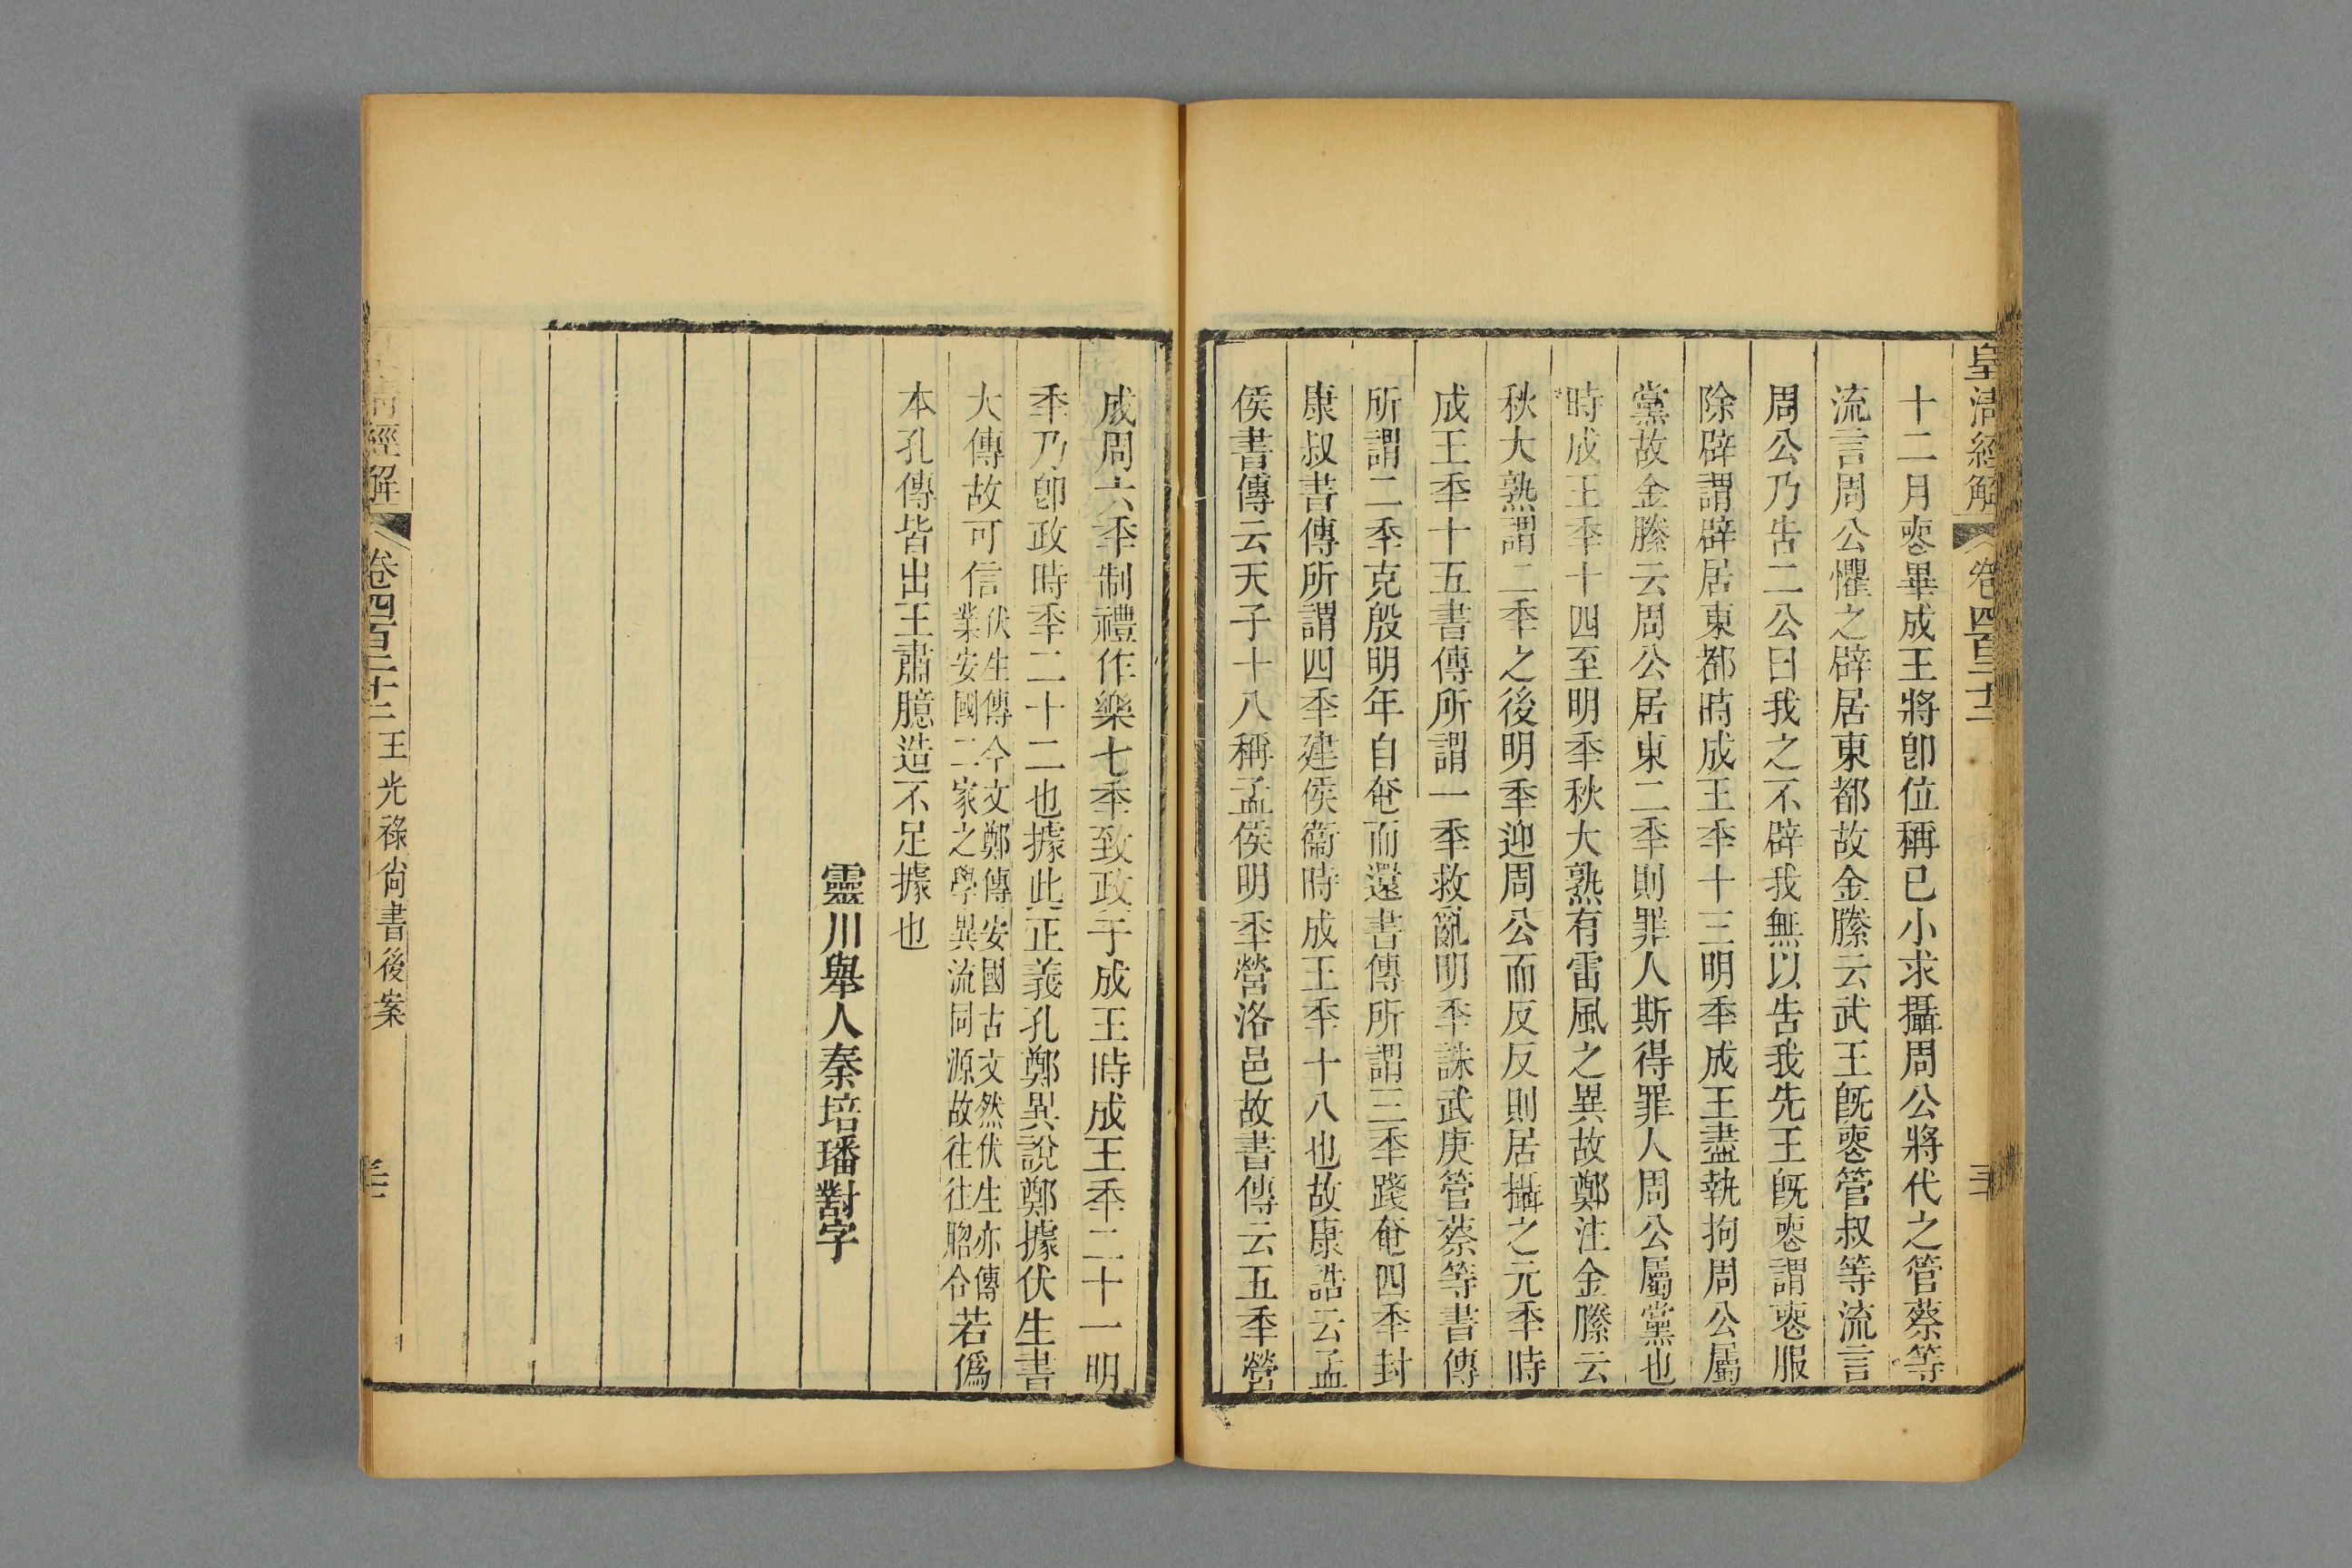 皇清經解
卷四百二十二
十二月䘮畢成王將卽位稱已小求攝周公將代之管蔡等
流言周公懼之辟居東都故金縢云武王旣䘮管叔等流言
周公乃吿二公曰我之不辟我無以吿我先王旣䘮謂䘮服
除辟謂辟居東都時成王秊十三明秊成王盡執拘周公屬
黨故金縢云周公居東二秊則罪人斯得罪人周公屬黨也
時成王秊十四至明秊秋大熟有雷風之異故鄭注金縢云
秋大熟謂二秊之後明秊迎周公而反反則居攝之元秊時
成王秊十五書傳所謂一秊救亂明秊誅武庚管蔡等書傳
所謂二秊克殷明年自奄而還書傳所謂三秊踐奄四秊封
康叔書傳所謂四秊建侯衞時成王秊十八也故康誥云孟
侯書傳云天子十八稱孟侯明秊營洛邑故書傳云五秊營
成周六秊制禮作樂七秊致政于成王時成王秊二十一明
秊乃卽政時秊二十二也據此正義孔鄭異說鄭據伏生書
大傳故可信伏生傳今文鄭傳安國古文然伏生亦傳業安國二家之學異流同源故往往脗合若僞
本孔傳皆出王肅臆造不足據也
靈川舉人秦培璠對字
經解
卷四百二十二
王光祿尙書後案